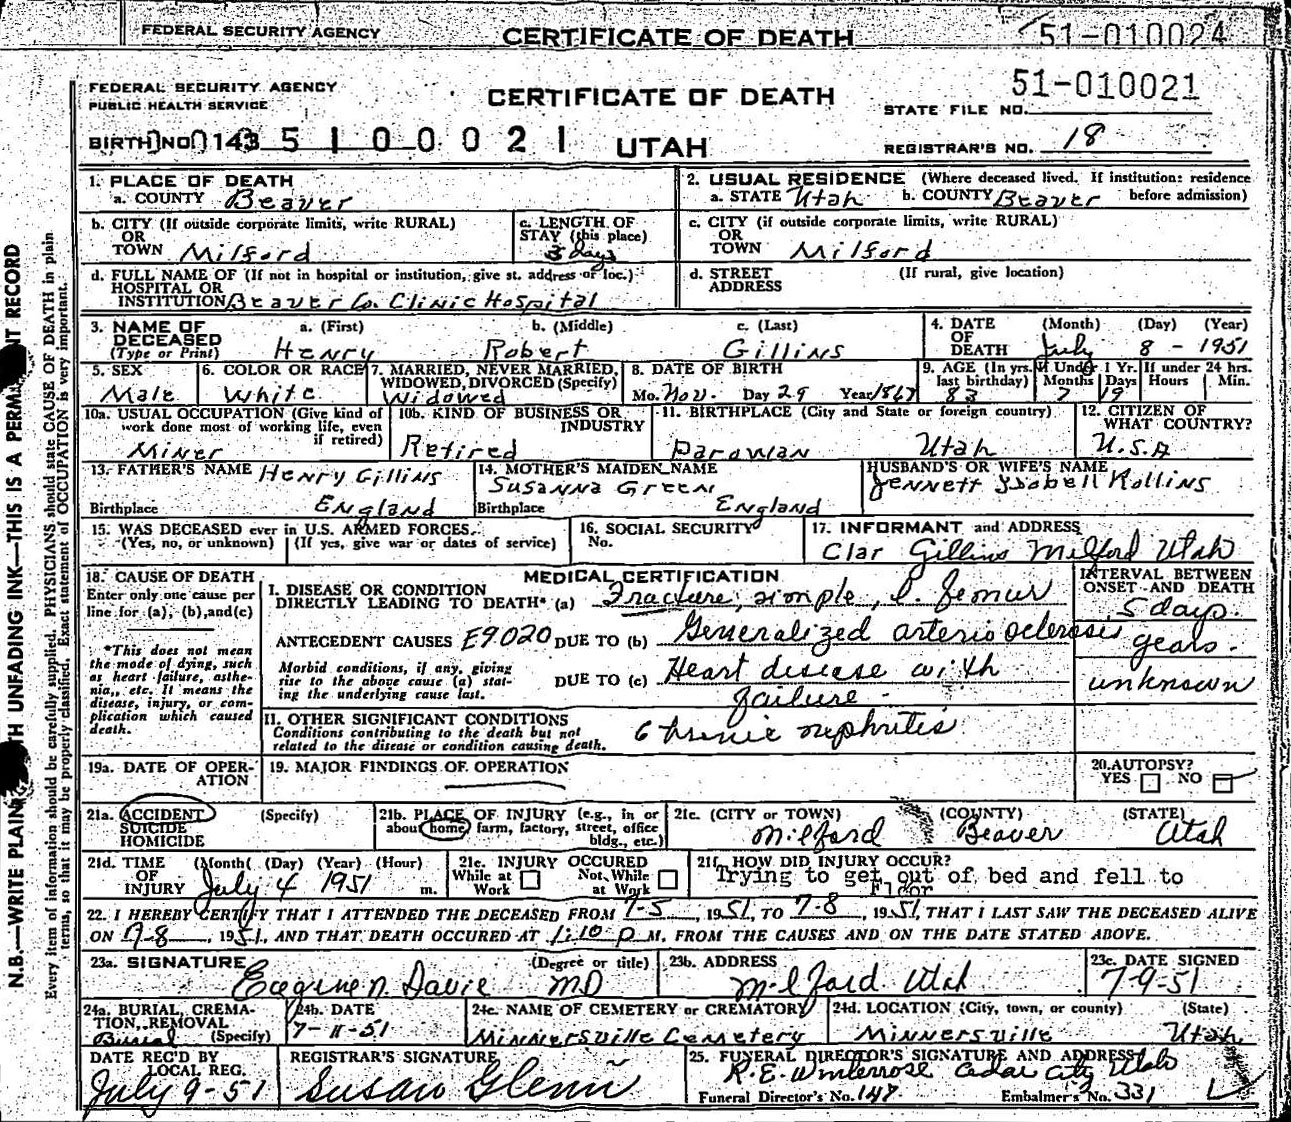 FEDERAL SECURITY AGENCY CERTIFICATE OF DEATH 51-010024
FEDERAL SECURITY AGENCY
PUBLIC HEALTH SERVICE
CERTIFICATE OF DEATH
51-010021
STATE FILE NO.
BIRTH NO. 143 5 1 0 0 0 2 1 UTAH
REGISTRAR'S NO. 18
1. PLACE OF DEATH
a. COUNTY Beaver
2. USUAL RESIDENCE (Where deceased lived. If institution: residence before admission)
a. STATE Utah b. COUNTY Beaver
b. CITY (If outside corporate limits, write RURAL)
OR
TOWN Milford
c. LENGTH OF
STAY (this place)
3 days
c. CITY (if outside corporate limits, write RURAL)
OR
TOWN Milford
d. FULL NAME OF (If not in hospital or institution, give st. address or loc.)
HOSPITAL OR
INSTITUTION Beaver Co. Clinic Hospital
d. STREET (If rural, give location)
ADDRESS
3. NAME OF DECEASED
(Type or Print)
a. (First) b. (Middle) c. (Last)
Henry Robert Gillins
4. DATE OF DEATH (Month) (Day) (Year)
July 8 - 1951
5. SEX
Male
6. COLOR OR RACE
White
7. MARRIED, NEVER MARRIED,
WIDOWED, DIVORCED (Specify)
Widowed
8. DATE OF BIRTH
Mo. Nov. Day 29 Year 1867
9. AGE (In yrs. last birthday) 83
If Under 1 Yr. Months 7 Days 9
If under 24 hrs. Hours Min.
10a. USUAL OCCUPATION (Give kind of
work done most of working life, even
if retired)
Miner
10b. KIND OF BUSINESS OR
INDUSTRY
Retired
11. BIRTHPLACE (City and State or foreign country)
Parowan Utah
12. CITIZEN OF
WHAT COUNTRY?
U.S.A
13. FATHER'S NAME Henry Gillins
Birthplace England
14. MOTHER'S MAIDEN NAME
Susanna Green
Birthplace England
HUSBAND'S OR WIFE'S NAME
Jennett Ysobell Rollins
15. WAS DECEASED ever in U.S. ARMED FORCES.
(Yes, no, or unknown) (If yes, give war or dates of service)
16. SOCIAL SECURITY
No.
17. INFORMANT and ADDRESS
Clar Gillins Milford Utah
18. CAUSE OF DEATH
Enter only one cause per
line for (a), (b), and (c)
*This does not mean
the mode of dying, such
as heart failure, asthe-
nia, etc. It means the
disease, injury, or com-
plication which caused
death.
MEDICAL CERTIFICATION
I. DISEASE OR CONDITION
DIRECTLY LEADING TO DEATH* (a) Fracture, simple, l. femur
ANTECEDENT CAUSES E9020 DUE TO (b) Generalized arteriosclerosis
Morbid conditions, if any, giving
rise to the above cause (a) stat-
ing the underlying cause last.
DUE TO (c) Heart disease with
failure -
II. OTHER SIGNIFICANT CONDITIONS
Conditions contributing to the death but not
related to the disease or condition causing death.
Chronic nephritis
INTERVAL BETWEEN
ONSET AND DEATH
5 days.
years.
unknown
19a. DATE OF OPER-
ATION
19. MAJOR FINDINGS OF OPERATION
20. AUTOPSY?
YES NO
21a. ACCIDENT (Specify)
SUICIDE
HOMICIDE
21b. PLACE OF INJURY (e.g., in or
about home, farm, factory, street, office
bldg., etc.)
21c. (CITY or TOWN) (COUNTY) (STATE)
Milford Beaver Utah
21d. TIME OF INJURY (Month) (Day) (Year) (Hour)
July 4 1951 m.
21e. INJURY OCCURED
While at Work Not While at Work
21f. HOW DID INJURY OCCUR?
Trying to get out of bed and fell to
Floor
22. I HEREBY CERTIFY THAT I ATTENDED THE DECEASED FROM 7-5, 1951, TO 7-8, 1951, THAT I LAST SAW THE DECEASED ALIVE
ON 7-8, 1951, AND THAT DEATH OCCURED AT 1:10 P M, FROM THE CAUSES AND ON THE DATE STATED ABOVE.
23a. SIGNATURE (Degree or title)
Eugene D. Davie MD
23b. ADDRESS
Milford Utah
23c. DATE SIGNED
7-9-51
24a. BURIAL, CREMA-
TION, REMOVAL
Burial (Specify)
24b. DATE
7-11-51
24c. NAME OF CEMETERY or CREMATORY
Minnersville Cemetery
24d. LOCATION (City, town, or county) (State)
Minnersville Utah
DATE REC'D BY
LOCAL REG.
July 9-51
REGISTRAR'S SIGNATURE
Susan Glenn
25. FUNERAL DIRECTOR'S SIGNATURE AND ADDRESS
R.E. Winterrose Cedar City Utah
Funeral Director's No. 147 Embalmer's No. 331
N.B.—WRITE PLAIN TH UNFADING INK—THIS IS A PERMA NT RECORD
Every item of information should be carefully supplied. PHYSICIANS should state CAUSE OF DEATH in plain
terms, so that it may be properly classified. Exact statement of OCCUPATION is very important.